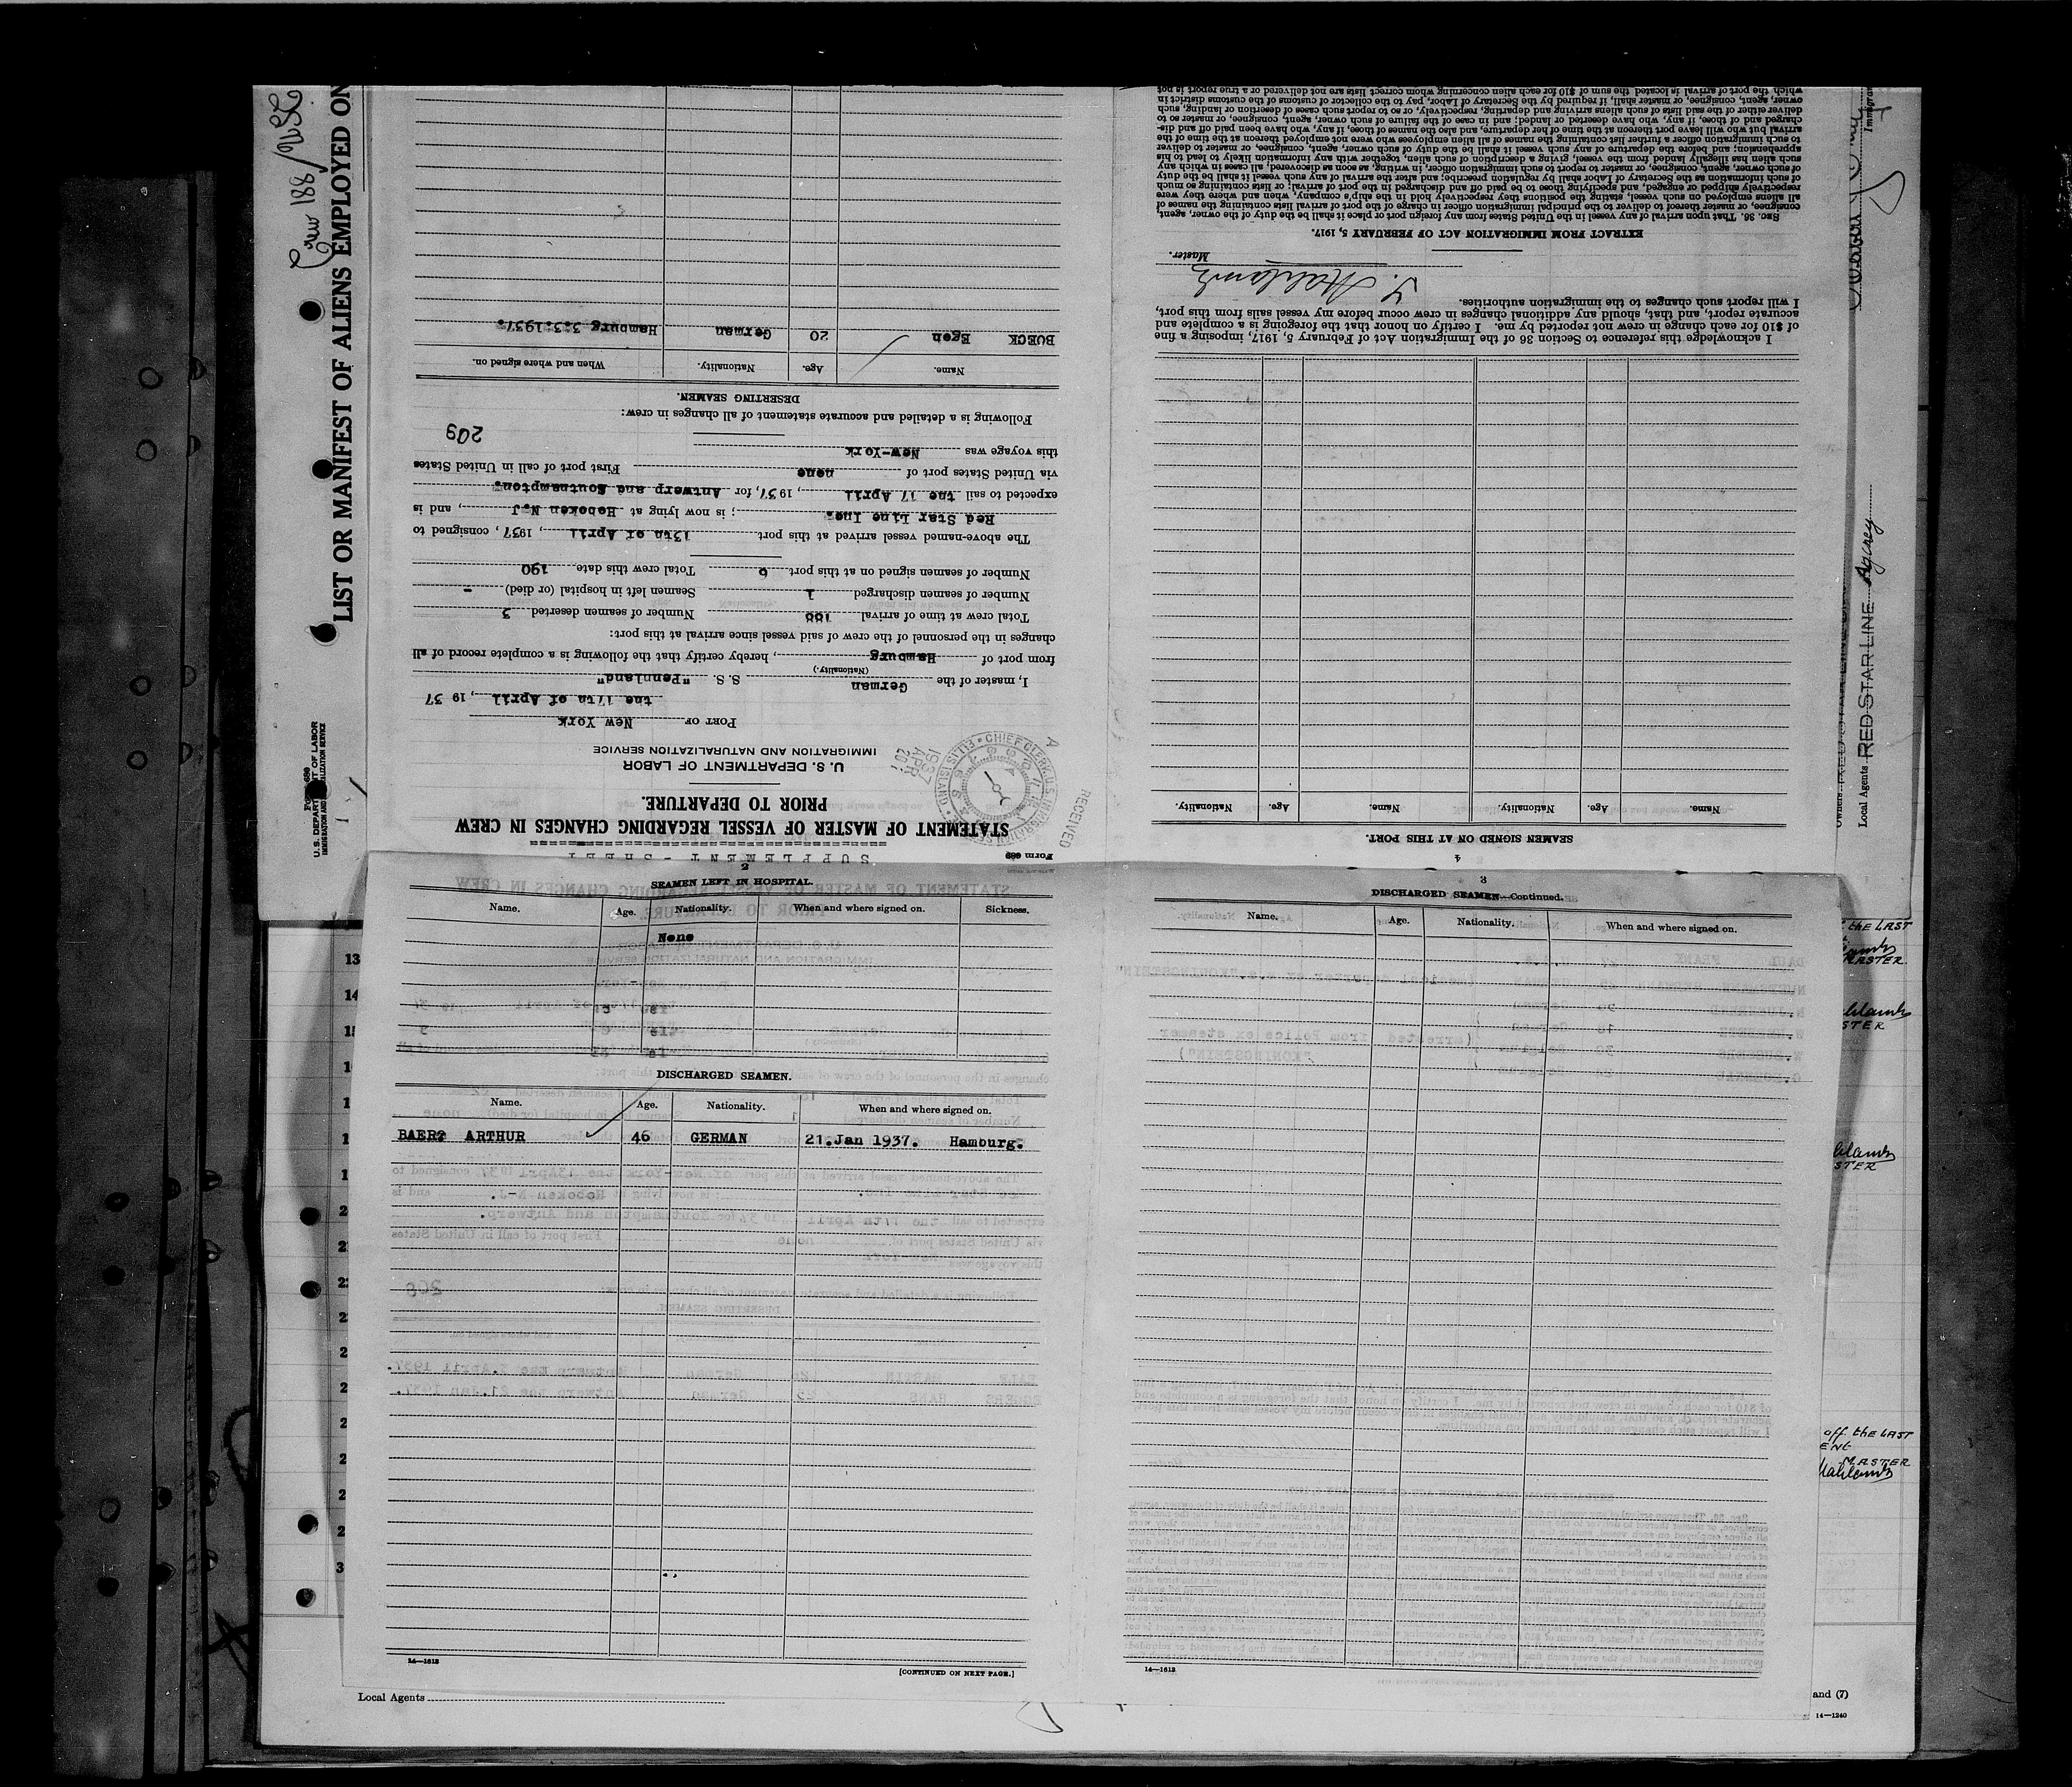 Crew 188
LIST OR MANIFEST OF ALIENS EMPLOYED ON
U. S. DEPARTMENT OF LABOR
IMMIGRATION AND NATURALIZATION SERVICE
Form 689
SUPPLEMENT - SHEET
STATEMENT OF MASTER OF VESSEL REGARDING CHANGES IN CREW
PRIOR TO DEPARTURE.
U. S. DEPARTMENT OF LABOR
IMMIGRATION AND NATURALIZATION SERVICE
RECEIVED
1937 APR 20
CHIEF CLERK, U.S. IMMIGRATION
ELLIS ISLAND
PORT OF New York
the 17th of April, 19 37
I, master of the German S. S. "Penland"
(Nationality.)
from port of Hamburg, hereby certify that the following is a complete record of all
changes in the personnel of the crew of said vessel since arrival at this port:
Total crew at time of arrival 188 Number of seamen deserted 3
Number of seamen discharged 1 Seamen left in hospital (or died) -
Number of seamen signed on at this port 6 Total crew this date 190
The above-named vessel arrived at this port 13th of April, 1937, consigned to
Red Star Line Inc.; is now lying at Hoboken N.J, and is
expected to sail the 17 April, 1937, for Antwerp and Southampton.
via United States port of none First port of call in United States
this voyage was New-York
209
Following is a detailed and accurate statement of all changes in crew:
DESERTING SEAMEN.
Name. Age. Nationality. When and where signed on.
BUECK Egon 20 German Hamburg 3.3.1937.
4
SEAMEN SIGNED ON AT THIS PORT.
Name. Age. Nationality. Name. Age. Nationality.
I acknowledge this reference to Section 36 of the Immigration Act of February 5, 1917, imposing a fine
of $10 for each change in crew not reported by me. I certify on honor that the foregoing is a complete and
accurate report, and that, should any additional changes in crew occur before my vessel sails from this port,
I will report such changes to the immigration authorities.
Master.
EXTRACT FROM IMMIGRATION ACT OF FEBRUARY 5, 1917.
SEC. 36. That upon arrival of any vessel in the United States from any foreign port or place it shall be the duty of the owner, agent,
consignee, or master thereof to deliver to the principal immigration officer in charge of the port of arrival lists containing the names of
all aliens employed on such vessel, stating the positions they respectively hold in the ship's company, when and where they were
respectively shipped or engaged, and specifying those to be paid off and discharged in the port of arrival; or lists containing so much
of such information as the Secretary of Labor shall by regulation prescribe; and after the arrival of any such vessel it shall be the duty
of such owner, agent, consignee, or master to report to such immigration officer, in writing, as soon as discovered, all cases in which any
such alien has illegally landed from the vessel, giving a description of such alien, together with any information likely to lead to his
apprehension; and before the departure of any such vessel it shall be the duty of such owner, agent, consignee, or master to deliver
to such immigration officer a further list containing the names of all alien employees who were not employed thereon at the time of the
arrival but who will leave port thereon at the time of her departure, and also the names of those, if any, who have been paid off and dis-
charged and of those, if any, who have deserted or landed; and in case of the failure of such owner, agent, consignee, or master so to
deliver either of the said lists of such aliens arriving and departing, respectively, or so to report such cases of desertion or landing, such
owner, agent, consignee, or master shall, if required by the Secretary of Labor, pay to the collector of customs of the customs district in
which the port of arrival is located the sum of $10 for each alien concerning whom correct lists are not delivered or a true report is not
Owners
Local Agents RED STAR LINE Agency
2
SEAMEN LEFT IN HOSPITAL.
Name. Age. Nationality. When and where signed on. Sickness.
None
DISCHARGED SEAMEN.
Name. Age. Nationality. When and where signed on.
BAER? ARTHUR 46 GERMAN 21.Jan 1937. Hamburg.
14—1613
[CONTINUED ON NEXT PAGE.]
3
DISCHARGED SEAMEN—Continued.
Name. Age. Nationality. When and where signed on.
14—1613
13
14
the LAST
MASTER
off the LAST
MASTER
Local Agents
and (7)
14—1240